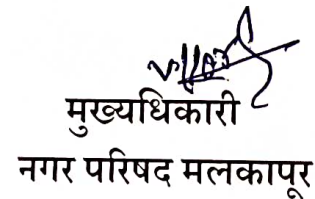 मुख्यधिकारी
नगर परिषद मलकापूर